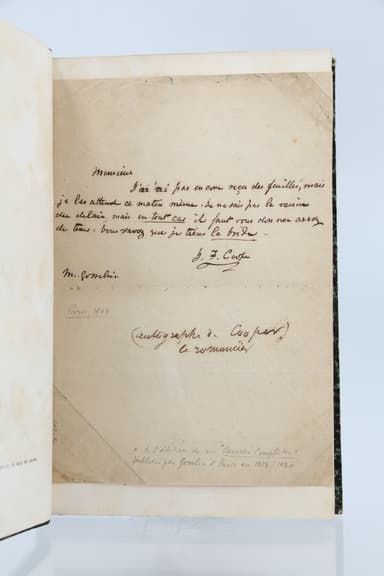 Monsieur
J'ai n'ai pas encore reçu des feuilles, mais
je les attend ce matin même. Je ne sais pas la raison
du delai, mais en tout cas il faut vous donner assez
de tems. Vous savez que je tiens la bride.
J. F. Cooper
M. Gosselin.
Paris
(autographe de Cooper)
le romancier
"Oeuvres Complètes"
publiées par Gosselin à Paris en